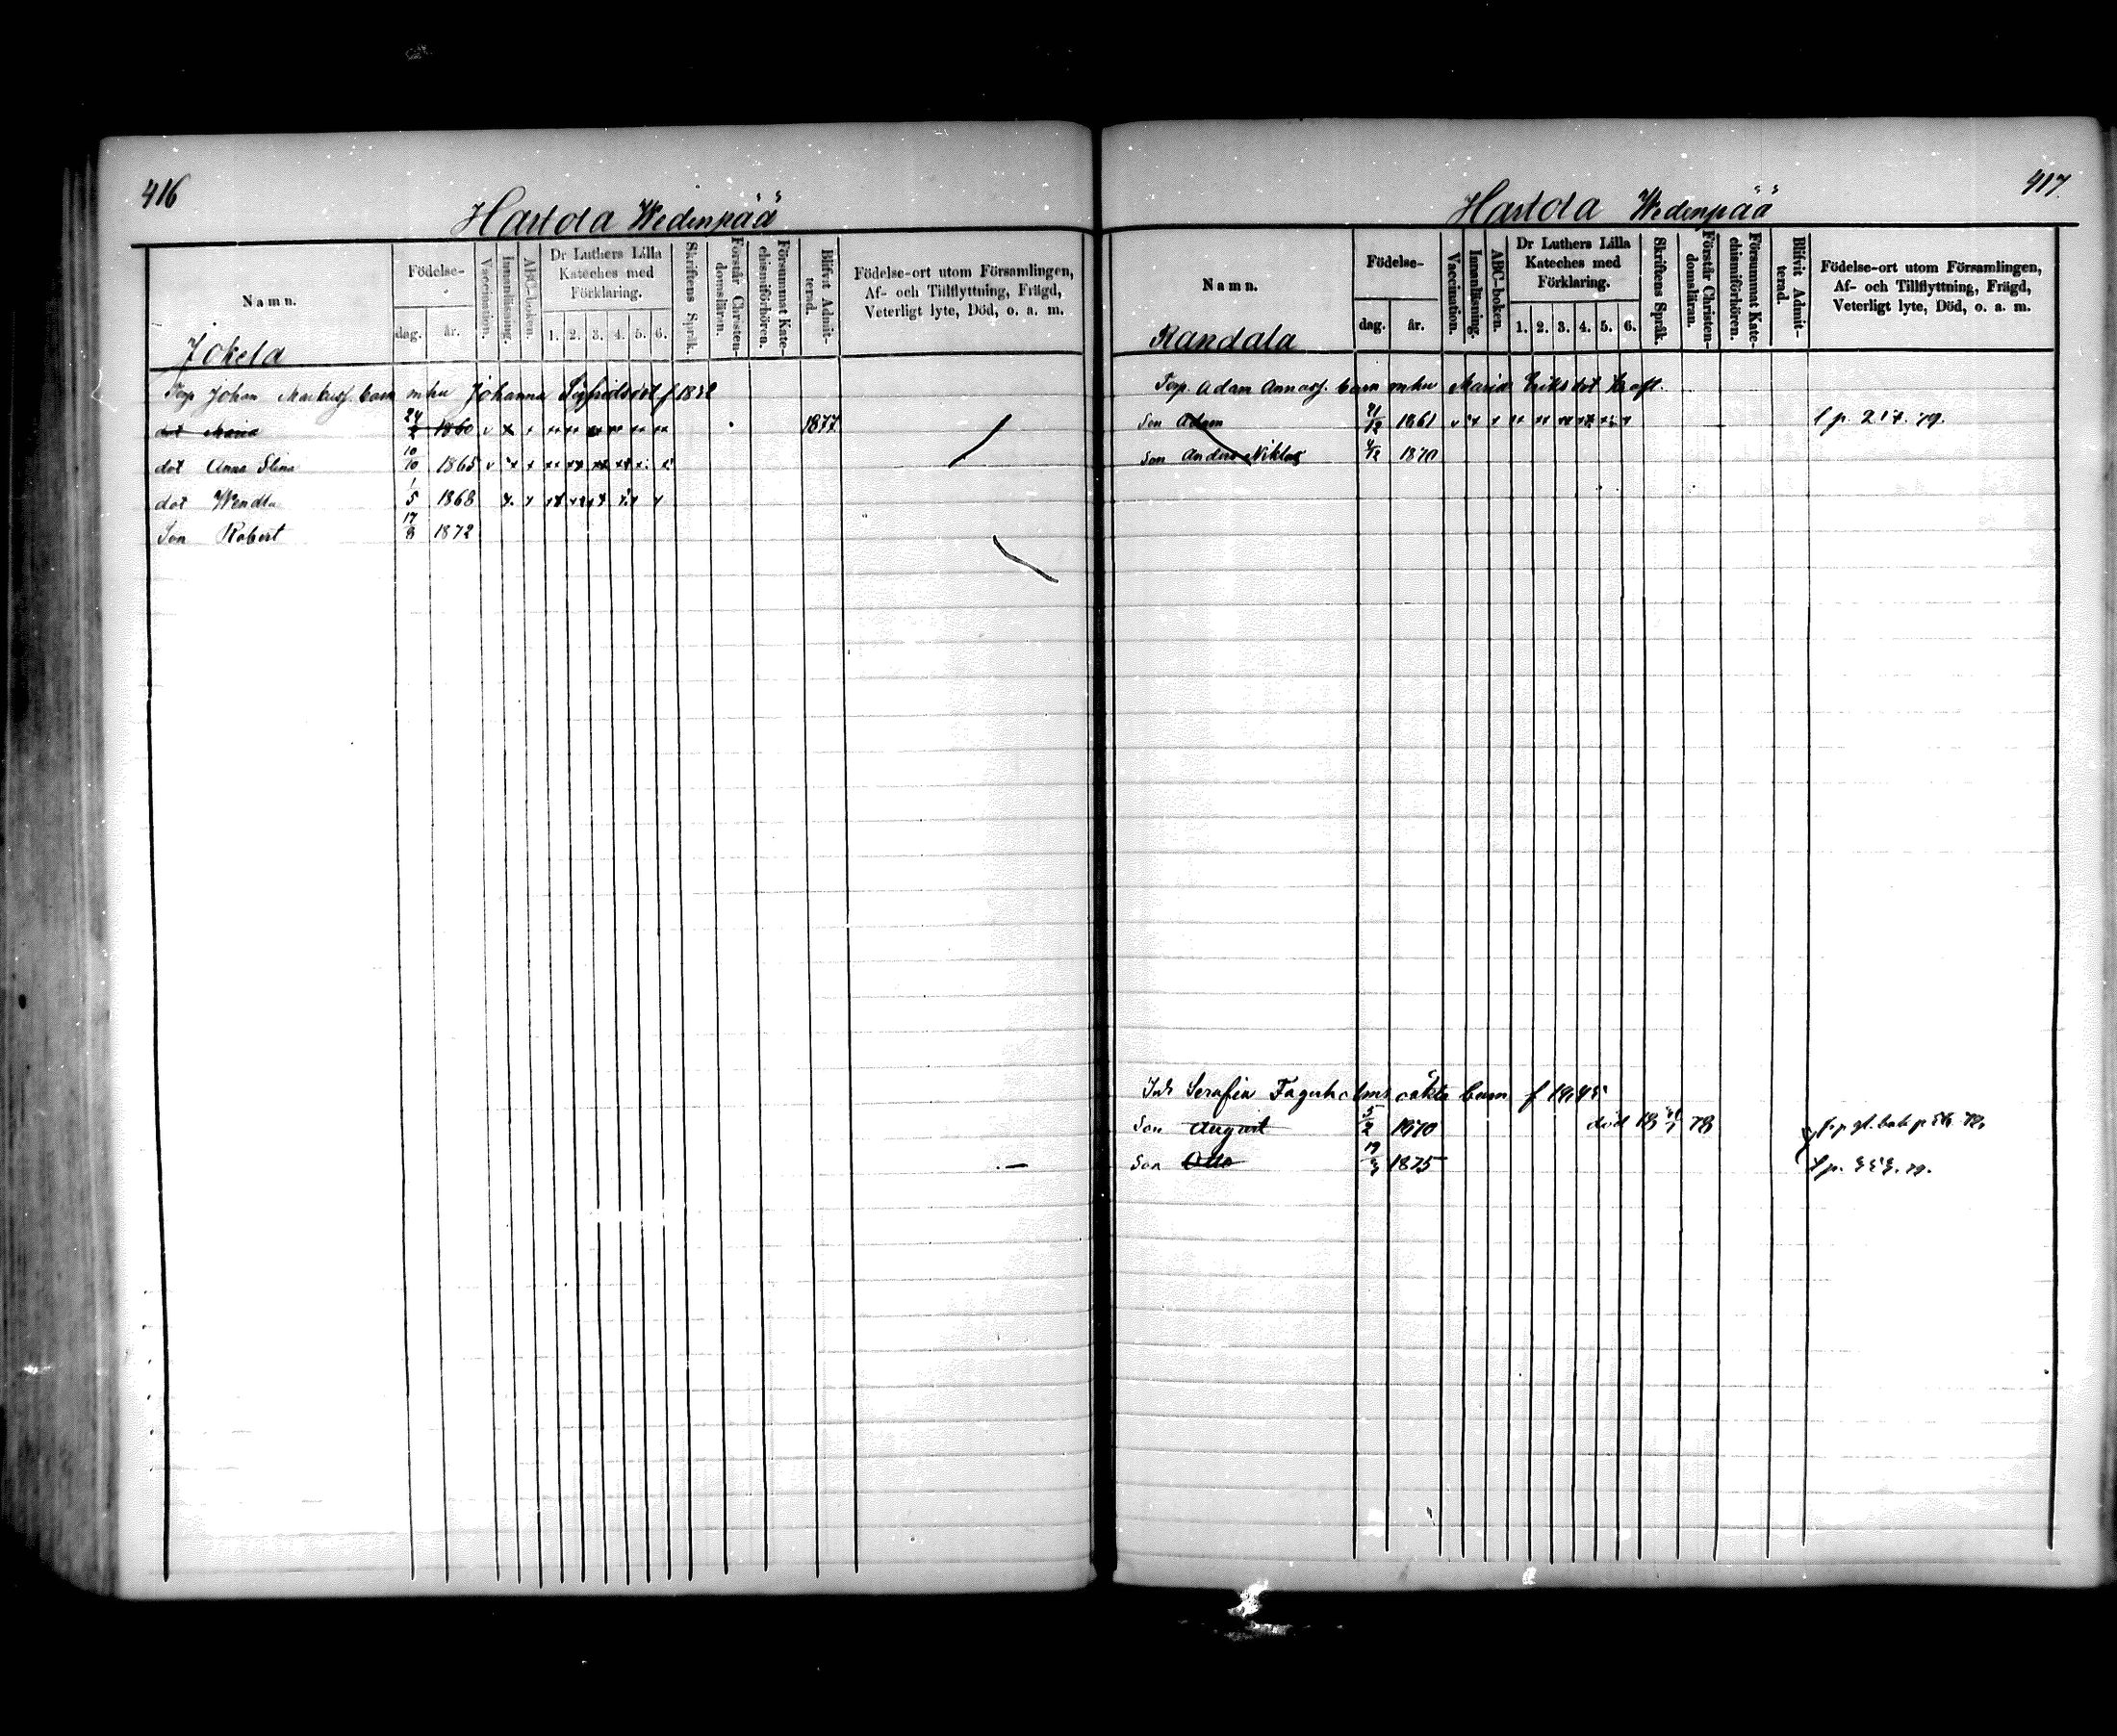 416
Hartola Wedenpää
Namn.
Födelse-
dag. år.
Vaccination.
Innanläsning.
ABC-boken.
Dr Luthers Lilla Kateches med Förklaring.
1. 2. 3. 4. 5. 6.
Skriftens Språk.
Förstår Christendomsläran.
Försummat Katechismiförhören.
Blifvit Admitterad.
Födelse-ort utom Församlingen,
Af- och Tillflyttning, Frägd,
Veterligt lyte, Död, o. a. m.
Jokela
Torp Johan barn m hu Johanna Sigfridsdot f
dot Maria 24/2 1860 1877
dot Anna Stina 10/10 1865
dot Wendla 1/5 1868
Son Robert 17/8 1872
417.
Hartola Wedenpää
Namn.
Födelse-
dag. år.
Vaccination.
Innanläsning.
ABC-boken.
Dr Luthers Lilla
Kateches med
Förklaring.
1. 2. 3. 4. 5. 6.
Skriftens Språk.
Förstår Christendomsläran.
Försummat Katechismiförhören.
Blifvit Admitterad.
Födelse-ort utom Församlingen,
Af- och Tillflyttning, Frägd,
Veterligt lyte, Död, o. a. m.
Randala
Torp. Adam barn m hu Maria Eriksdot
Son Adam 21/12 1861
Son Anders Niklas 4/12 1870
Serafia Fagerholms oäkta barn f
Son August 5/2 1870 död 78
Son Otto 19/3 1875